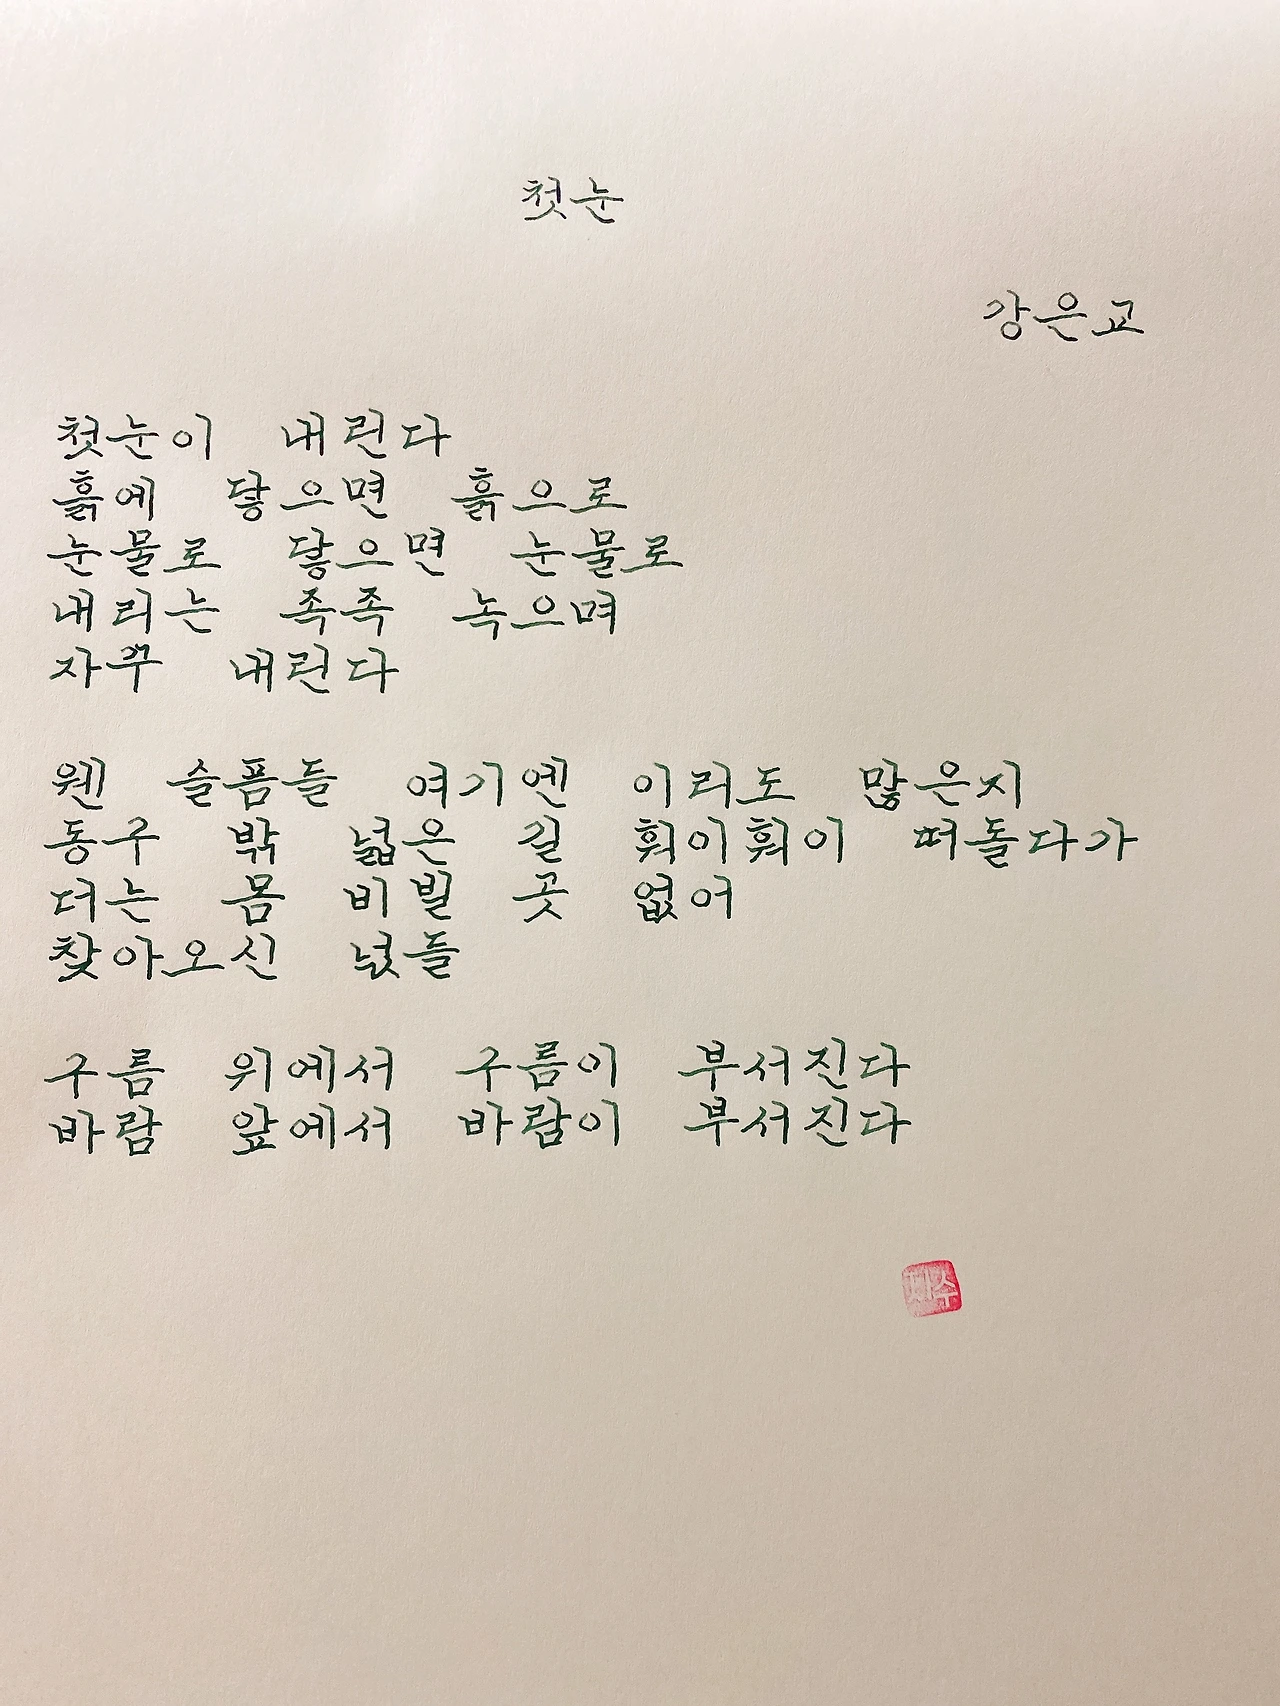 첫눈
강은교
첫눈이 내린다
흙에 닿으면 흙으로
눈물로 닿으면 눈물로
내리는 족족 녹으며
자꾸 내린다
웬 슬픔들 여기엔 이리도 많은지
동구 밖 넓은 길 훠이훠이 떠돌다가
더는 몸 비빌 곳 없어
찾아오신 넋들
구름 위에서 구름이 부서진다
바람 앞에서 바람이 부서진다